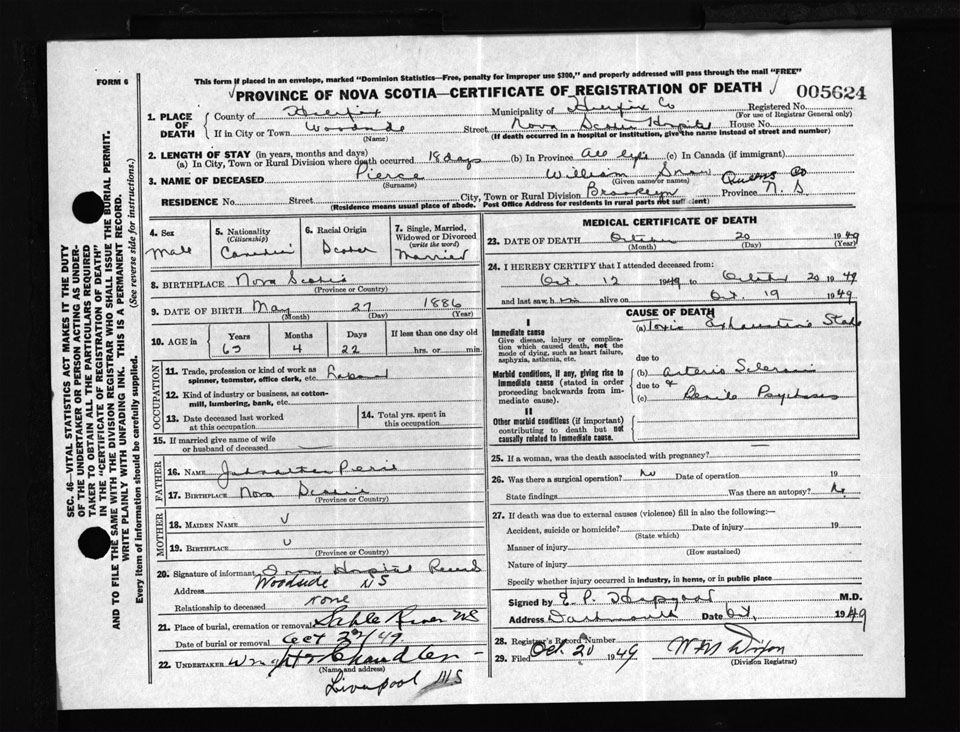 FORM 6
This form if placed in an envelope, marked "Dominion Statistics—Free, penalty for improper use $300," and properly addressed will pass through the mail "FREE"
PROVINCE OF NOVA SCOTIA—CERTIFICATE OF REGISTRATION OF DEATH
005624
1. PLACE OF DEATH
County of Halifax Municipality of Halifax Co Registered No.
(For use of Registrar General only)
If in City or Town Woodside Street Nova Scotia Hospital House No.
(Name) (If death occurred in a hospital or institution, give the name instead of street and number)
2. LENGTH OF STAY (in years, months and days)
(a) In City, Town or Rural Division where death occurred 18 days (b) In Province All life (c) In Canada (if immigrant)
3. NAME OF DECEASED Pierce William
(Surname) (Given name or names)
RESIDENCE No. Street City, Town or Rural Division Brooklyn Province Queens Co N. S
(Residence means usual place of abode. Post Office Address for residents in rural parts not sufficient)
4. Sex Male
5. Nationality (Citizenship)
6. Racial Origin
7. Single, Married, Widowed or Divorced (write the word) Married
8. BIRTHPLACE Nova Scotia
(Province or Country)
9. DATE OF BIRTH May 27 1886
(Month) (Day) (Year)
10. AGE in Years 63 Months 4 Days 22 If less than one day old hrs. or min.
OCCUPATION
11. Trade, profession or kind of work as spinner, teamster, office clerk, etc.
12. Kind of industry or business, as cotton-mill, lumbering, bank, etc.
13. Date deceased last worked at this occupation
14. Total yrs. spent in this occupation
15. If married give name of wife or husband of deceased
FATHER
16. NAME
17. BIRTHPLACE Nova Scotia
(Province or Country)
MOTHER
18. MAIDEN NAME U
19. BIRTHPLACE U
(Province or Country)
20. Signature of informant From Hospital Record
Address Woodside NS
Relationship to deceased None
21. Place of burial, cremation or removal Sable River NS
Date of burial or removal Oct 22/49.
22. UNDERTAKER Wright & Chandler
(Name and address)
Liverpool N.S
MEDICAL CERTIFICATE OF DEATH
23. DATE OF DEATH October 20 1949
(Month) (Day) (Year)
24. I HEREBY CERTIFY that I attended deceased from:
Oct. 12 1949 to October 20 1949
and last saw him alive on Oct. 19 1949
CAUSE OF DEATH
I
Immediate cause
Give disease, injury or complication which caused death, not the mode of dying, such as heart failure, asphyxia, asthenia, etc.
(a) Toxic Exhaustive State
due to
Morbid conditions, if any, giving rise to immediate cause (stated in order proceeding backwards from immediate cause).
(b) Arterio Sclerosis
due to &
(c) Senile Psychosis
II
Other morbid conditions (if important) contributing to death but not causally related to immediate cause.
25. If a woman, was the death associated with pregnancy?
26. Was there a surgical operation? No Date of operation 19
State findings Was there an autopsy? No
27. If death was due to external causes (violence) fill in also the following:—
Accident, suicide or homicide? Date of injury 19
(State which)
Manner of injury
(How sustained)
Nature of injury
Specify whether injury occurred in industry, in home, or in public place
Signed by E. P. M.D.
Address Dartmouth Date Oct, 1949
28. Registrar's Record Number
29. Filed Oct. 20 1949 Dixon
(Division Registrar)
SEC. 46—VITAL STATISTICS ACT MAKES IT THE DUTY
OF THE UNDERTAKER OR PERSON ACTING AS UNDER-
TAKER TO OBTAIN ALL THE PARTICULARS REQUIRED
IN THE "CERTIFICATE OF REGISTRATION OF DEATH"
AND TO FILE THE SAME WITH THE DIVISION REGISTRAR WHO SHALL ISSUE THE BURIAL PERMIT.
WRITE PLAINLY WITH UNFADING INK. THIS IS A PERMANENT RECORD.
Every item of information should be carefully supplied. (See reverse side for instructions.)